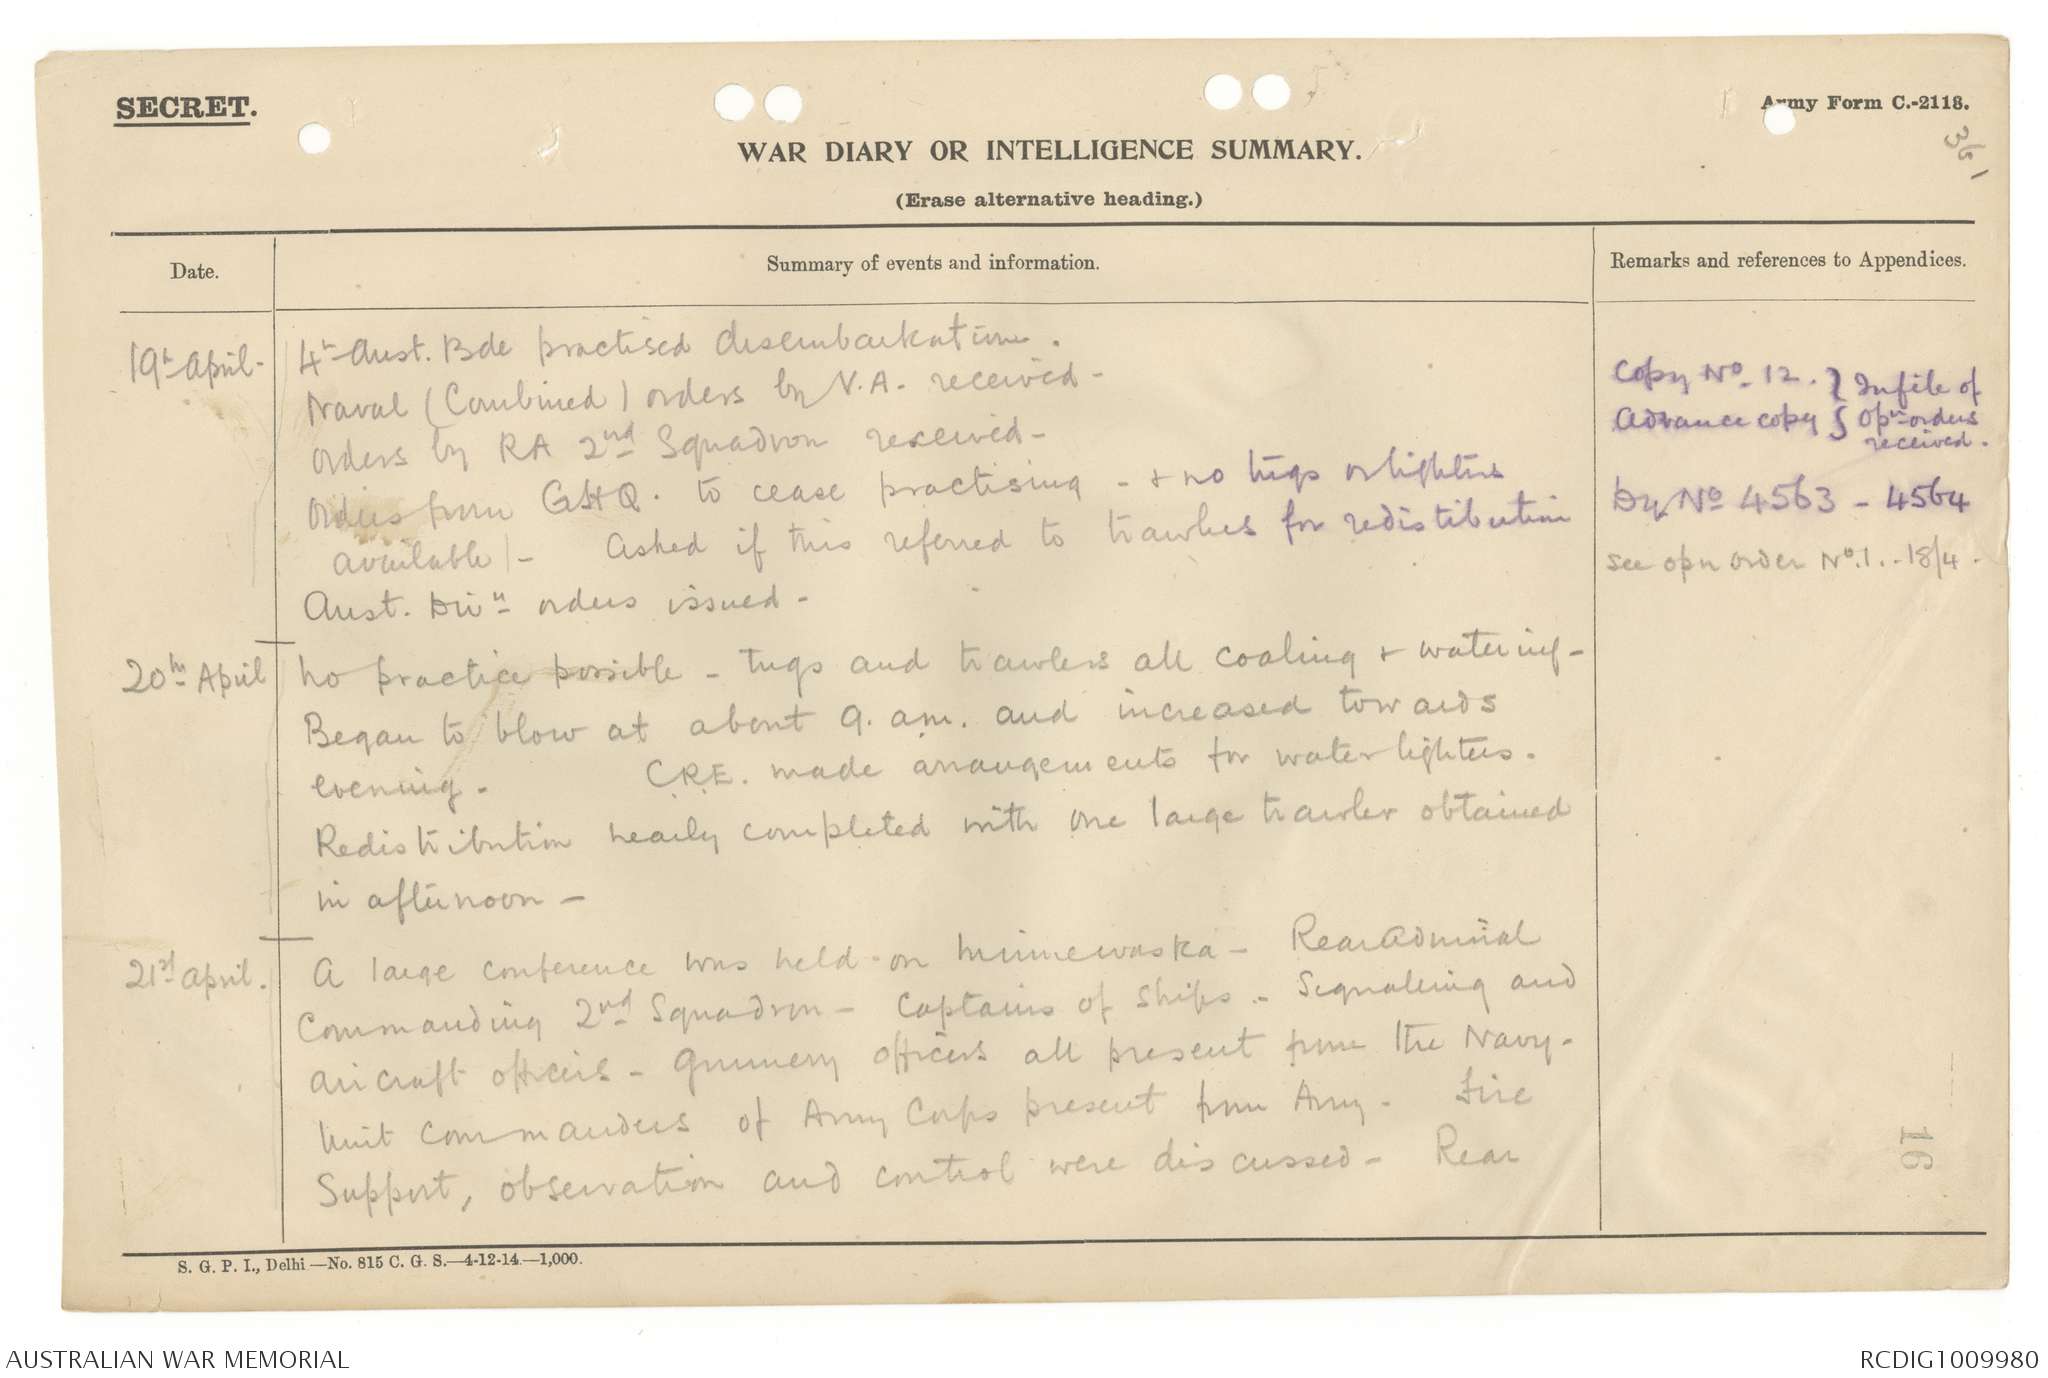 SECRET.
Army Form C.-2118.
WAR DIARY OR INTELLIGENCE SUMMARY.
(Erase alternative heading.)
Date.
Summary of events and information.
Remarks and references to Appendices.
19th April -
4th Aust. Bde practised disembarkation.
Naval (Combined) orders by V.A. received -
orders by RA 2nd Squadron received -
Orders from GHQ. to cease practising - + no tugs or lighters
available - Asked if this referred to trawlers for redistribution
Aust. Divn orders issued -
Copy No. 12. } In file of
Advance copy } Opn orders
received.
By No 4563 - 4564
See opn order No. 1. - 18/4.
20th April
No practice possible - Tugs and trawlers all coaling + watering -
Began to blow at about 9. am. and increased towards
evening - C.R.E. made arrangements for water lighters.
Redistribution nearly completed with one large trawler obtained
in afternoon -
21st April.
A large conference was held on Minnewaska - Rear Admiral
Commanding 2nd Squadron - Captains of Ships - Signalling and
aircraft officers - Gunnery officers all present from the Navy -
Unit Commanders of Army Corps present from Army - Fire
Support, observation and control were discussed - Rear
16
S. G. P. I., Delhi —No. 815 C. G. S.—4-12-14.—1,000.
AUSTRALIAN WAR MEMORIAL
RCDIG1009980